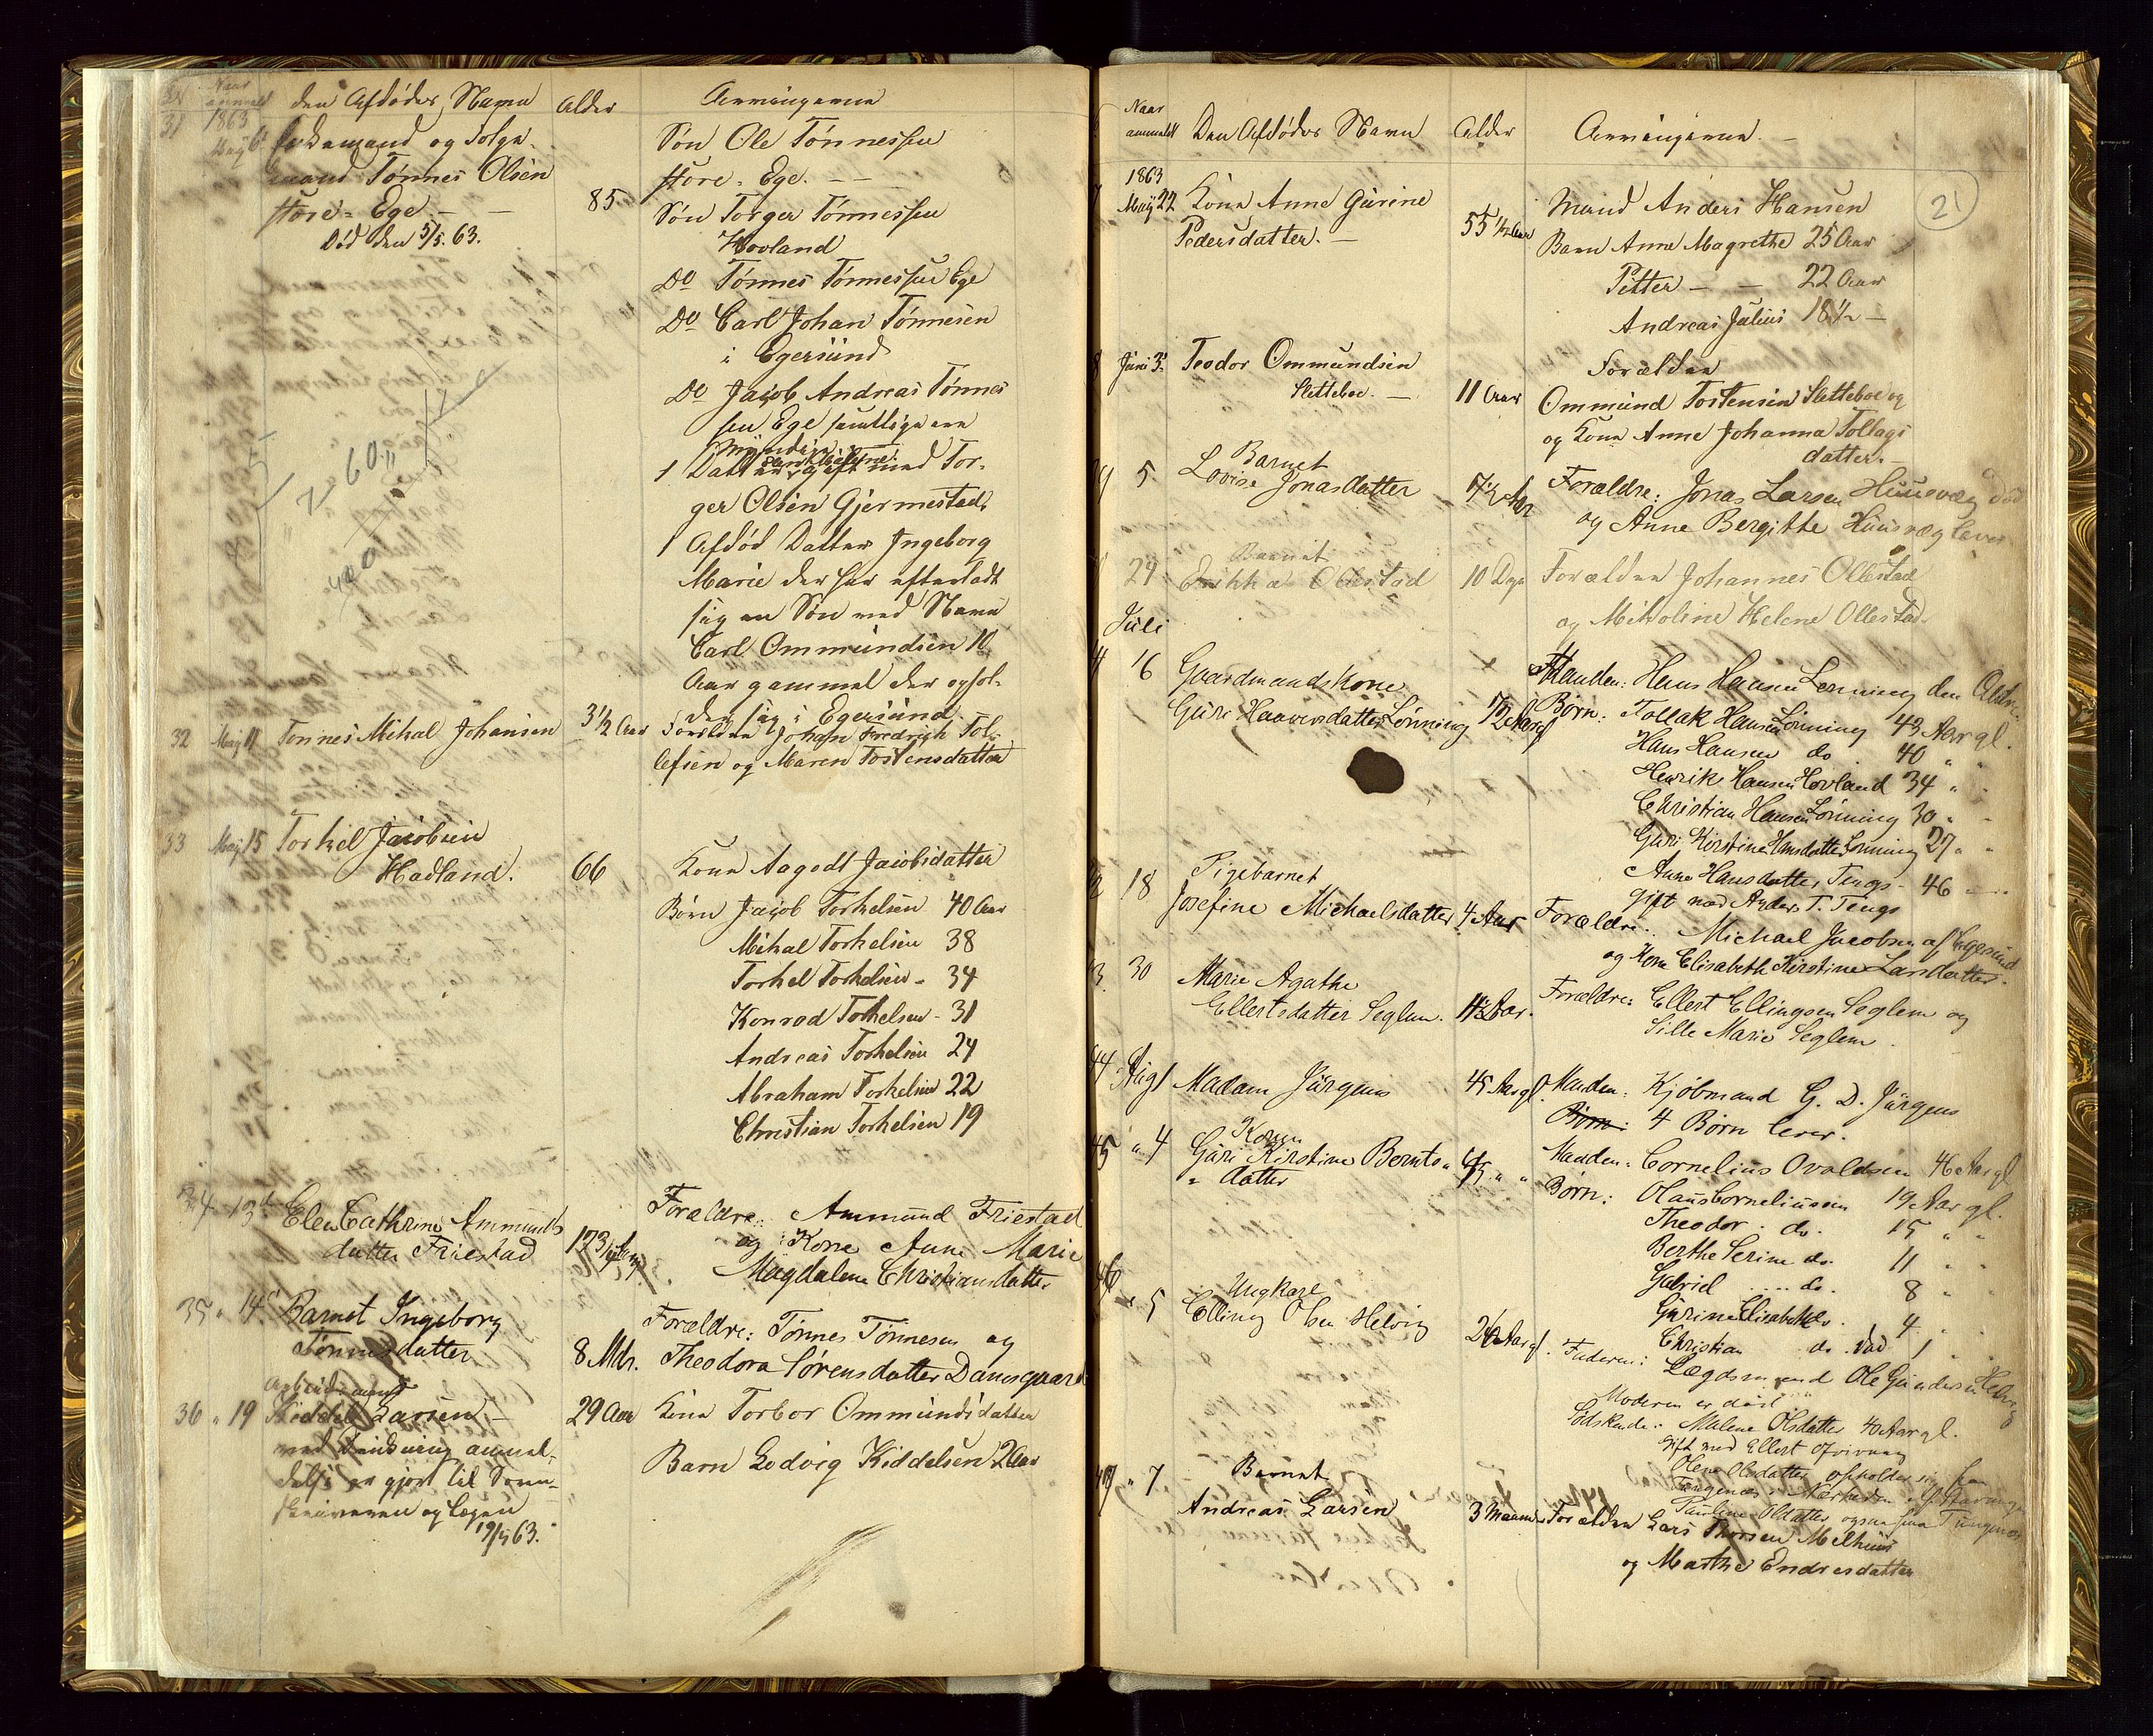 Naar anmeldt
den Afdødes Navn
Alder
Arvingerne
31
1863
Maj 6
mand Tønnes Olsen
store-Ege
Død den 5/5. 63.
85
Søn Ole Tønnessen
store-Ege.
Søn Torger Tønnessen
Hovland
Do Tønnes Tønnessen Ege
Do Carl Johan Tønnesen
i Egersund
Do Jacob Andreas Tønnes
sen Ege samtlige ere
Myndige
1 Datter gift med Tor-
ger Olsen Gjermestad,
1 Afdød Datter Ingeborg
Marie der har efterladt
sig en Søn med Navn
Carl Ommundsen 10
Aar gammel der ophol-
der sig i Egersund
32 Maj 11 Tønnes Mikal Johansen 3 1/2 Aar Forældre Johan Fredrik Tol-
lefsen og Maren Tostensdatter
33 Maj 15 Torkel Jacobsen
Hadland. 66 Kone Aagodt Jacobsdatter
Børn Jacob Torkelsen 40 Aar
Mikal Torkelsen 38
Torkel Torkelsen - 34
Konrad Torkelsen - 31
Andreas Torkelsen 24
Abraham Torkelsen 22
Christian Torkelsen 19
34 13d Elen Cathrine Ammunds
datter Friestad
Forældre: Ammund Friestad
og Kone Anne Marie
Magdalene Christiansdatter
35 " 14d Barnet Ingeborg
Tønnesdatter 8 Mdr.
Forældre: Tønnes Tønnesen og
Theodora Sørensdatter Damsgaard
Arbeidsmand
36 " 19 Kiddel Larsen 29 Aar Kone Torbor Ommundsdatter
anmel-
delse er gjort til Soren-
skriveren og Lægen
19/5 63.
Barn Lodvig Kiddelsen 2 Aar
Naar
anmeldt Den Afdødes Navn Alder Arvingerne.
21
1863
Maj 22 Kone Anne Gurine
Pedersdatter. 55 1/2 Aar
Mand Anders Hansen
Barn Anne Magrethe 25 Aar
Petter — — 22 Aar
Andreas Julius 18 1/2 —
8 Juni 3. Teodor Ommundsen
Slettebø. — 11 Aar
Forældre
Ommund Tostensen Slettebø og
og Kone Anne Johanna Tollags
datter.
Barnet
5. Lovise Jonasdatter
Forældre: Jonas Larsen Huusvæg død
og Anne Bergitte Huusvæg lever
Barnet
29 Erikka Ollestad 10 Dge Forældre Johannes Ollestad
og Mikoline Helene Ollestad.
Juli
16 Gaardmandskone
Guri Haaversdatter Lønning
Manden: Hans Hansen Lønning den Ældre
Børn: Tollak Hansen Lønning 43 Aar gl.
Hans Hansen do 40 " "
Henrik Hansen Hovland 34 " "
Christian Hansen Lønning 30 " "
Guri Kirstine Hansdatter Lønning 27 " "
Anne Hansdatter, Tengs - 46
gift med Anders T. Tengs
Pigebarnet
18 Josefine Michaelsdatter 4 Aar
Forældre: Michael Jacobsen af Egersund
og Kone Elisabeth Kirstine Larsdatter.
30 Marie Agathe
Ellertsdatter Seglem.
Forældre: Ellert Ellingsen Seglem og
Sille Marie Seglem.
44 Aug 1 Madam Jürgens 45 Aar gl. Manden: Kjøbmand G. D. Jürgens
Børn: 4 Børn lever.
Konen
45 " 4 Guri Kirstine Bernts-
datter 45 " "
Manden: Cornelius Ovaldsen 46 Aar gl
Børn: Olaus Corneliussen 19 Aar gl.
Theodor do. 15 " "
Berthe Serine do. 11 " "
Gabriel do. 8 " "
Gurine Elisabeth do. 4 " "
Christian do. død 1
46
Ungkarl
5 Elling Olsen Helvig
Faderen: Lægdsmand Ole Gundersen Helvig
Moderen er død
Sødskende: Malene Olsdatter 40 Aar gl.
gift med Ellert
Olene Olsdatter opholder sig
Tungenæs i Nærheden af Stavanger
Pauline Olsdatter, ogsaa fra Tungenæs
" 7. Barnet
Andreas Larsen 3 Maaneder Forældre Lars Thorsen Melhuus
og Marthe Endresdatter